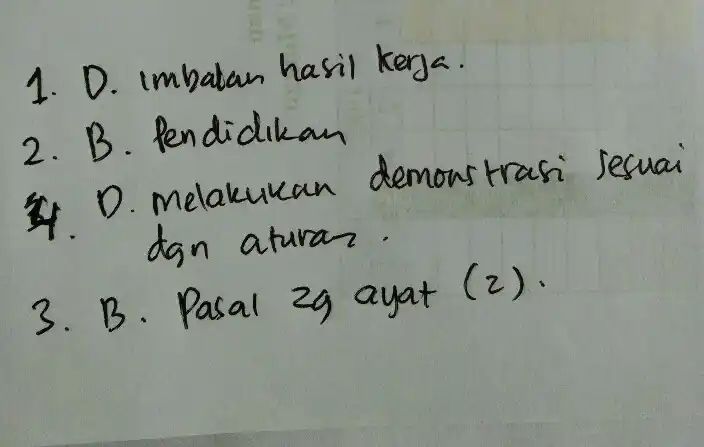 1. D. imbalan hasil kerja.
2. B. Pendidikan
4. D. melakukan demonstrasi sesuai
dgn aturan.
3. B. Pasal 29 ayat (2).